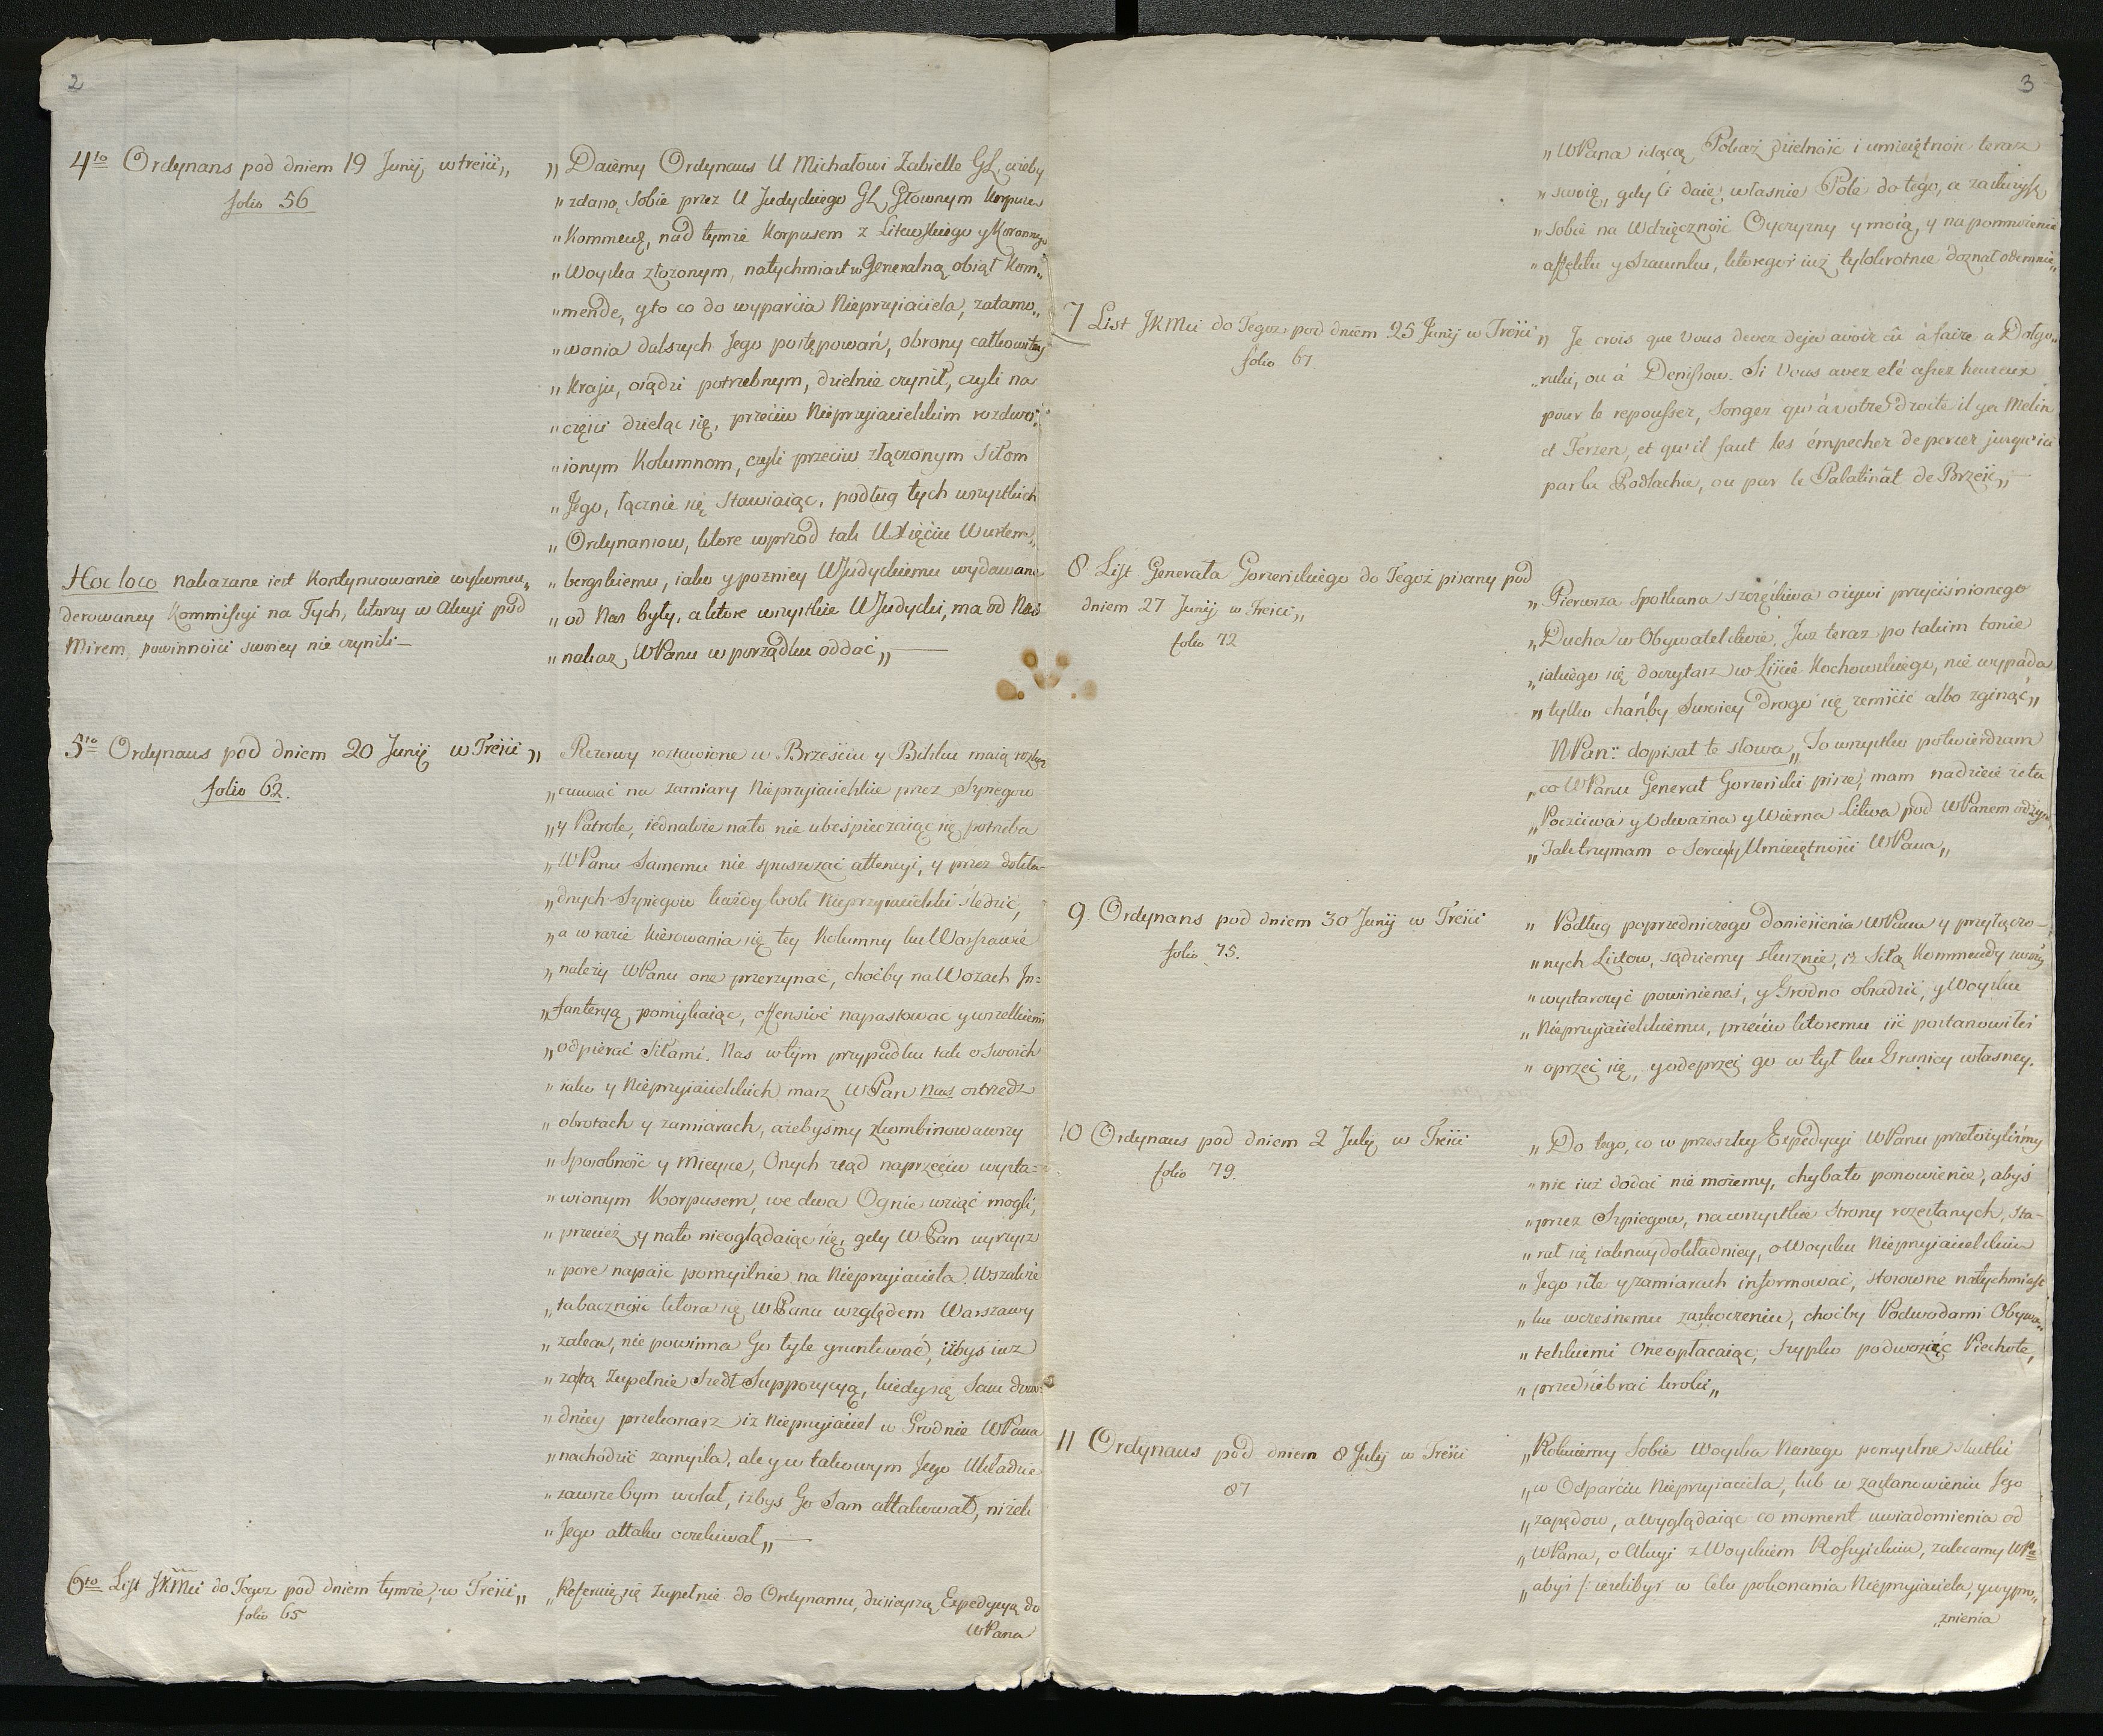 2
4to Ordynans pod dniem 19 Junij, w treści,,
folio 56
,, Daiemy Ordynans U Michałowi Zabielle GL, ażeby
,, zdaną Sobie przez U Judyckiego GL Głownym Korpusu
,, Kommendę, nad tymże Korpusem z Litewskiego y Koronnego
,, Woyska złożonym, natychmiast w Generalną obiął Kom,,
,, mendę, y to co do wyparcia Nieprzyiaciela, zatamo,,
,, wania dalszych Jego postępowań, obrony całkowitey
,, Kraju, osądzi potrzebnym, dzielnie czynił, czyli na
,, części dzieląc się, przeciw Nieprzyiacielskim rozdwo,,
,, ionym Kolumnom, czyli przeciw złączonym Siłom
,, Jego, łącznie się stawiaiąc, podług tych wszystkich
,, Ordynansow, ktore wprzod tak U Xięciu Wurtem,,
,, bergskiemu, iako y pozniey W Judyckiemu wydawane
,, od Nas były, a ktore wszystkie W Judycki, ma od Nas
,, nakaz, WPanu w porządku oddać,, —
Hoc loco nakazane iest kontynuowanie wykomen,,
derowaney Kommissyi na Tych, ktorzy w Akcyi pod
Mirem, powinności swoiey nie czynili —
5to Ordynans pod dniem 20 Junij w Treści ,,
folio 62.
Rezerwy rozstawione w Brześciu y Bilsku maią
,, czuwać na zamiary Nieprzyiacielskie przez Szpiegow
,, y Patrole, iednakże nato nie ubespieczaiąc się, potrzeba
,, WPanu Samemu nie spuszczać attencyi, y przez dokła-
,, dnych Szpiegow każdy krok Nieprzyiacielski śledzić,
,, a w razie kierowania się tey Kolumny ku Warszawie
,, należy WPanu one przerzynać, choćby na Wozach In=
,, fanteryą pomykaiąc, offensivè napastować y wszelkiemi
,, odpierać Siłami. Nas w tym przypadku tak o Swoich
,, iako y Nieprzyiacielskich masz WPan Nas ostrzedz
,, obrotach y zamiarach, ażebyśmy skombinowawszy
,, Sposobność y Mieysce, Onych ztąd naprzeciw wysta=
,, wionym Korpusem, we dwa Ognie wziąć mogli,
,, przecież y nato nieoglądaiąc się, gdy WPan uyrzysz
,, porę napaść pomyślnie na Nieprzyiaciela. Wszakże
,, ta baczność ktora się WPanu względem Warszawy
,, zaleca, nie powinna Go tyle gruntować, iżbyś iuż
,, za tą zupełnie szedł Suppozycyą, kiedy się Sam
,, dniey przekonasz iż Nieprzyiaciel w Grodnie WPana
,, nachodzić zamyśla, ale y w takowym Jego Układzie
,, zawszebym wolał, iżbyś Go Sam attakował, niżeli
,, Jego attaku oczekiwał,, —
6to List JKMci do Tegoż pod dniem tymże, w Treści,,
folio 65
,, Referuię się zupełnie do Ordynansu, dzisieyszą Expedycyą do
WPana
3
,, WPana idącą. Pokaż dzielność i umieiętność teraz
,, swoię, gdy Ci daię właśnie Pole do tego, a zasłużysz
,, sobie na Wdzięczność Oyczyzny y moią, y na pomnożenie
,, affektu y szacunku, ktoregoś iuż tylokrotnie doznał odemnie,,
7 List JKMci do Tegoż pod dniem 25 Junij w Treści
folio 67
,, Je crois que Vous devez deja avoir eû à faire a Dołgo,,
,, ruki, ou á Denissow. Si Vous avez eté assez heureux
pour le repousser, songez qu'à votre droite il y a Melin
et Ferzen, et qu'il faut les émpecher de percer jusqu'ici
par la Podlachie, ou par le Palatinát de Brześć,, —
8 List Generała Gorzeńskiego do Tegoż pisany pod
dniem 27 Junij w Treści,,
folio 72
,, Pierwsza Spotkana szczęśliwa ożywi przyciśnionego
,, Ducha w Obywatelstwie, Już teraz po takim tonie
,, iakiego się doczytasz w Liście Kochowskiego, nie wypada
,, tylko chańby Swoiey drogo się zemścić albo zginąć,,
NPan: dopisał te słowa,, To wszystko potwierdzam
,, co WPanu Generał Gorzeński pisze, mam nadzieię że ta
,, Poczciwa y Odważna y Wierna Litwa pod WPanem
,, Tak trzymam o Sercu y Umieiętności WPana,,
9. Ordynans pod dniem 30 Junij w Treści
folio 75.
,, Podług poprzedniczego doniesienia WPana y przyłączo-
,, nych Listow, sądziemy słusznie, iż Siłą Kommendy swoiey
,, wystarczyć powinieneś, y Grodno obradzić, y Woysku
,, Nieprzyiacielskiemu, przeciw ktoremu iść postanowiłeś
,, oprzeć się, y odeprzeć go w tył ku Granicy własney.
10 Ordynans pod dniem 2 July w Treści
folio 79.
,, Do tego, co w przeszłey Expedycyi WPanu przełożyliśmy
,, nic iuż dodać nie możemy, chyba to ponowienie, abyś
,, przez Szpiegow, na wszystkie strony rozesłanych, sta-
,, rał się iaknaydokładniey, o Woysku Nieprzyiacielskim
,, Jego sile y zamiarach informować, stosowne natychmiast
,, ku wczesnemu zaskoczeniu, choćby Podwodami Obywa,,
,, telskiemi One opłacaiąc, szypko podwożąc Piechotę,
,, przedsiębrać kroki,,
11 Ordynans pod dniem 8 July w Treści
87
,, Rokuiemy Sobie Woyska Naszego pomyślne skutki
,, w Odparciu Nieprzyiaciela, lub w zastanowieniu Jego
,, zapędow, a wyglądaiąc co moment uwiadomienia od
,, WPana, o Akcyi z Woyskiem Rossyiskim, zalecamy WPu
,, abyś /: ieżelibyś w celu pokonania Nieprzyiaciela, y wypro,,
,, żnienia